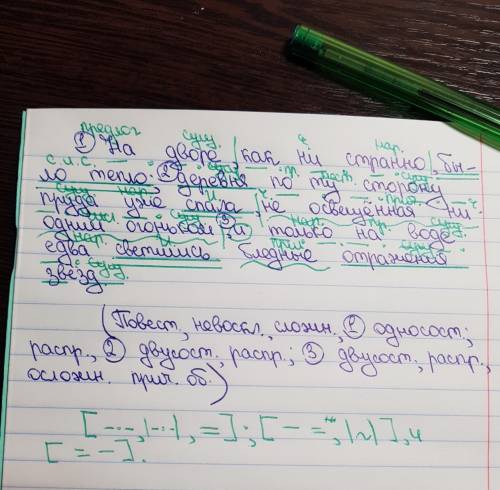 предлог сущ. ч. нар.
① На дворе, как ни странно, бы-
с.и.с.
ло тепло. ② Деревня по ту сторону
сущ. нар.
пруда уже спала, не освещённая ни
одним огоньком; ③ и только на воде
нар. прил.
едва светились бледные отражения
сущ.
звёзд
(Повест., невоскл., сложн., ① односост.;
распр., ② двусост., распр.; ③ двусост., распр.,
осложн. прич. об.)
[-·-·, |-·-·|, =]; [- =, |~|], и
[= -].